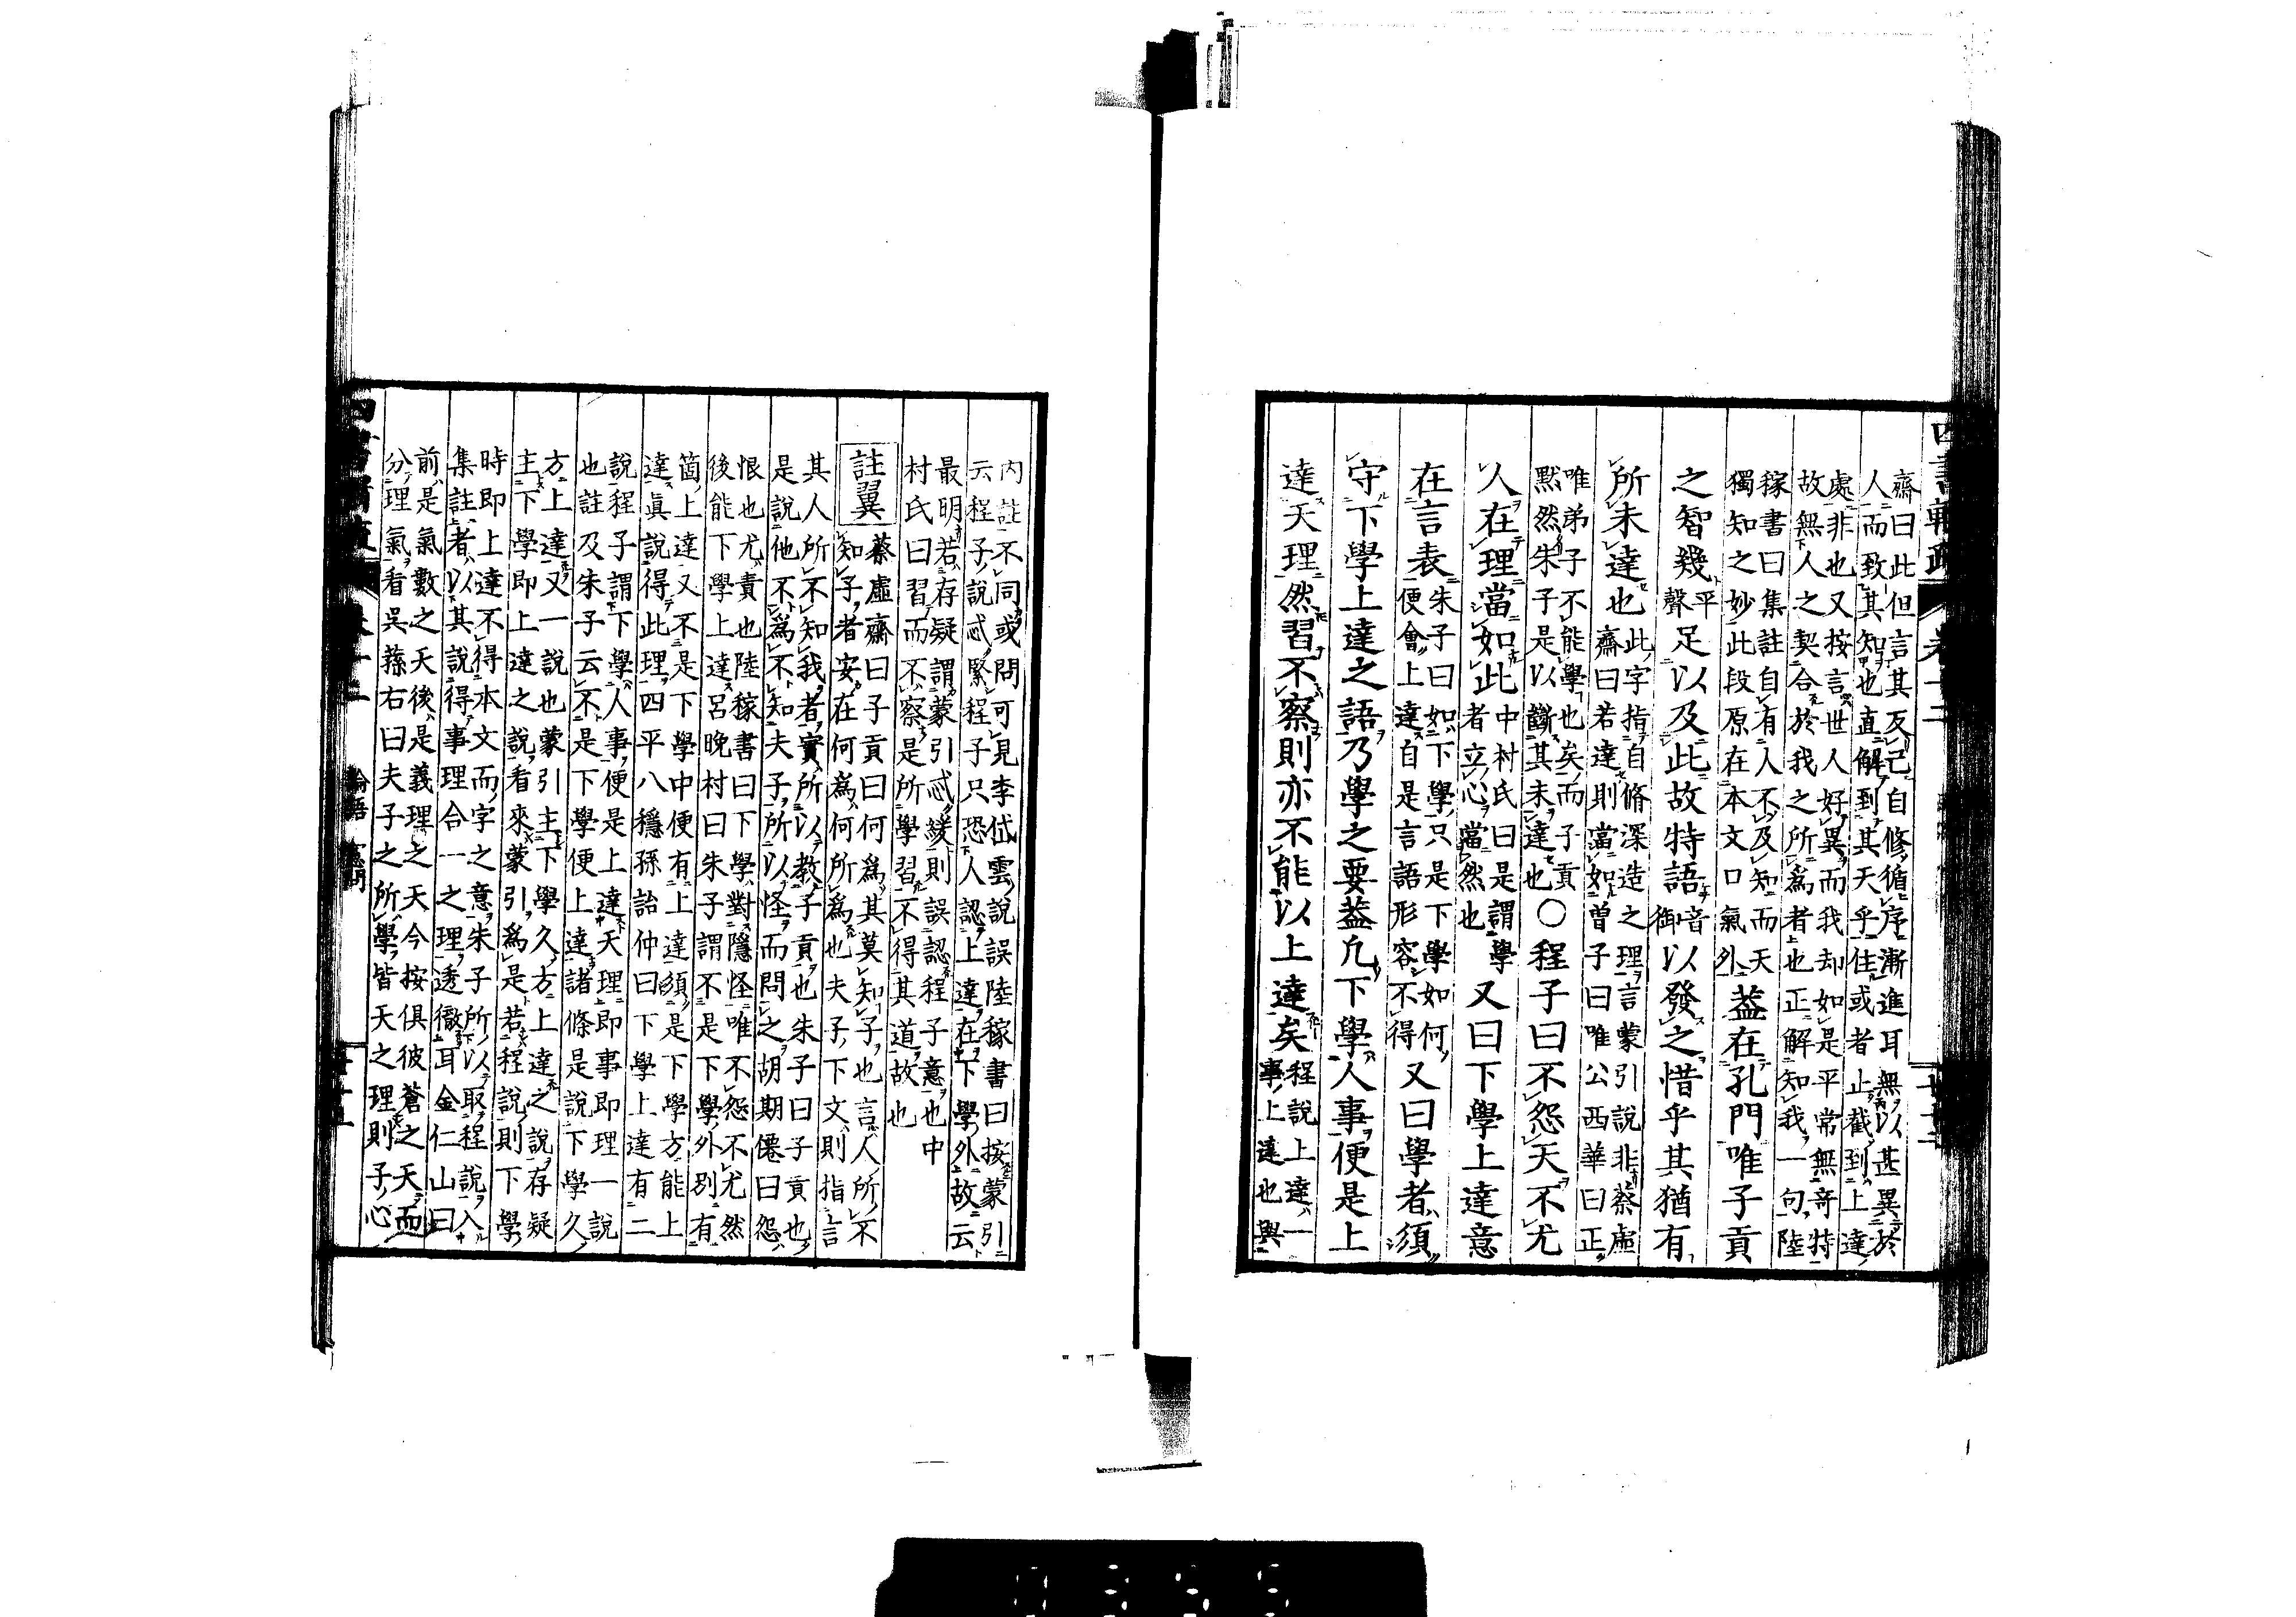 齋曰此但言其反己自修循序漸進耳無以甚異於
人而致其知也直解到其天乎住或者止截到上達
處非也又按言世人好異而我却如是平常無奇特
故無人之契合於我之所為者也正解知我一句陸
稼書曰集註自有人不及知而天
獨知之妙此段原在本文口氣外
蓋在孔門唯子貢
之智幾平聲足以及此故特語音御以發之惜乎其猶有
所未達也
此字指自脩深造之理言蒙引說非蔡虛
齋曰若達則當如曾子曰唯公西華曰正
唯弟子不能學也矣而子貢
默然朱子是以斷其未達也
○程子曰不怨天不尤
人在理當如此
中村氏曰是謂學
者立心當然也
又曰下學上達意
在言表
朱子曰如下學只是下學如何
便會上達自是言語形容不得
又曰學者須
守下學上達之語乃學之要蓋凡下學人事便是上
達天理然習不察則亦不能以上達矣
程說上達一
事上達也與
內註不同或問可見李岱雲說誤陸稼書曰按蒙引
云程子說忒緊程子只恐人認上達在下學外故云
最明若存疑謂蒙引忒緩則誤認程子意也中
村氏曰習而不察是所學習不得其道故也
註翼
蔡虛齋曰子貢曰何為其莫知子也言人所不
知子者安在何為何所為也夫子下文則指言
其人所不知我者實所以教子貢也朱子曰子貢也
是說他不為不知夫子所以怪而問之胡期僊曰怨
恨也尤責也陸稼書曰下學對隱怪唯不怨不尤然
後能下學上達呂晚村曰朱子謂不是下學外別有
箇上達又不是下學中便有上達須是下學方能上
達真說得此理四平八穩孫詒仲曰下學上達有二
說程子謂下學人事便是上達天理即事即理一說
也註及朱子云不是下學便上達諸條是說下學久
方上達又一說也蒙引主下學久方上達之說存疑
主下學即上達之說看來蒙引為是若程說則下學
時即上達不得本文而字之意朱子所以取程說入
集註者以其說得事理合一之理透徹耳金仁山曰
前是氣數之天後是義理之天今按俱彼蒼之天而
分理氣看吳蓀右曰夫子之所學皆天之理則子心
論語 憲問